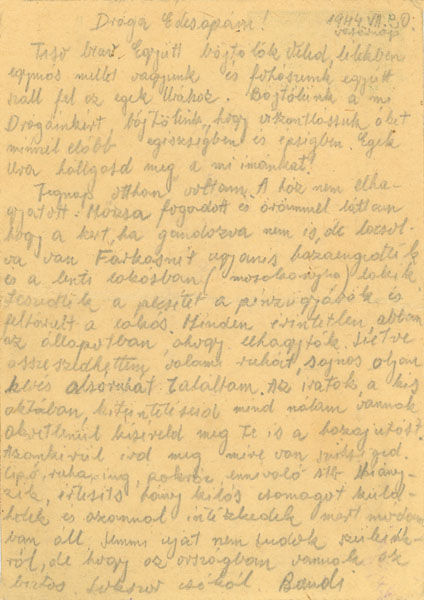 Drága Édesapám! 1944 VII. 30.
vasárnap
Tisó beav. Együtt bőjtölök Veled, lélekben
egymás mellett vagyunk és fohászunk együtt
száll fel az egek Urához. Bőjtölünk a mi
Drágáinkért, bőjtölünk, hogy viszontlássuk őket
minnél előbb egészségben és épségben. Egek
Ura hallgasd meg a mi imánkat!
Tegnap otthon voltam. A ház nem elha-
gyatott. Mózsa fogadott és örömmel láttam
hogy a kert, ha gondozva nem is, de locsol-
va van Farkasnét ugyanis hazaengedték
és a lenti lakásban (mosókonyha) lakik
a pecsétet a pénzügyőrök és
feltörték a lakás. Minden érintetlen, abban
az állapotban, ahogy elhagyták. Sietve
összeszedhettem valami ruhát, sajnos olyan
kevés alsóruhát találtam. Az iratok a kis
aktában, kitüntetéseid mind nálam vannak
okvetlenül kíséreld meg Te is a hazajutást.
Azonkívül írd meg mire van szükséged
cipő, ruha, ing, pokróc, ennivaló stb. hiány-
zik, értesíts hány kilós csomagot küld-
hetek és azonnal intézkedek mert módom-
ban áll. Semmi újat nem tudok szüleid-
ről, de hogy az országban vannak az
biztos Sokszor csókol Bandi